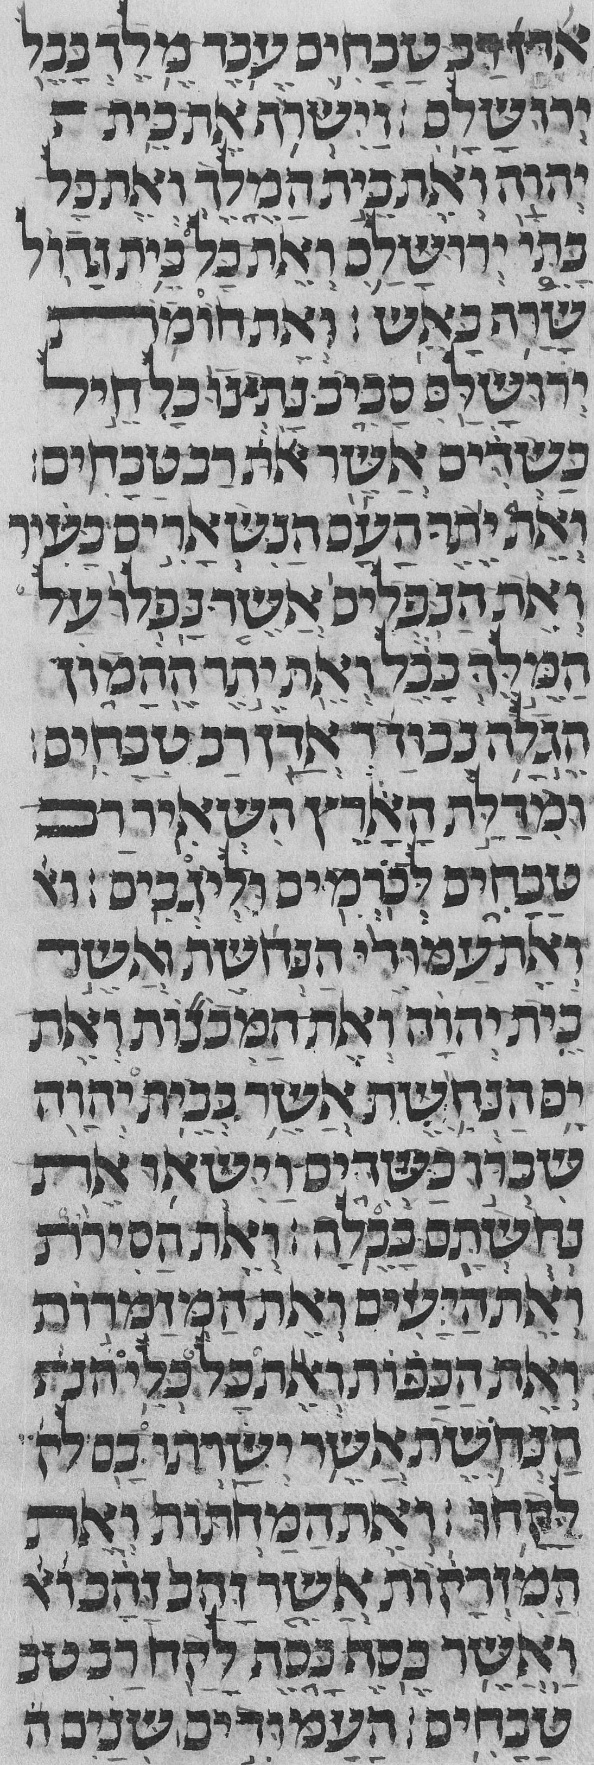 אדן רב טבחים עבד מלך בבל
ירושלם : וישרף את בית ה
יהוה ואת בית המלך ואת כל
בתי ירושלם ואת כל בית גדול
שרף באש : ואת חומת
ירושלם סביב נתצו כל חיל
כשדים אשר את רב טבחים :
ואת יתר העם הנשארים בעיר
ואת הנפלים אשר נפלו על
המלך בבל ואת יתר ההמון
הגלה נבוזראדן רב טבחים :
ומדלת הארץ השאיר רב
טבחים לכרמים וליגבים : וא
ואת עמודי הנחשת ואשר
בית יהוה ואת המכנות ואת
ים הנחשת אשר בבית יהוה
שברו כשדים וישאו את
נחשתם בבלה : ואת הסירות
ואת היעים ואת המזמרות
ואת הכפות ואת כל כלי הנח
הנחשת אשר ישרתו בם לק
לקחו : ואת המחתות ואת
המזרקות אשר זהב זהב וא
ואשר כסף כסף לקח רב טב
טבחים : העמודים שנים ה